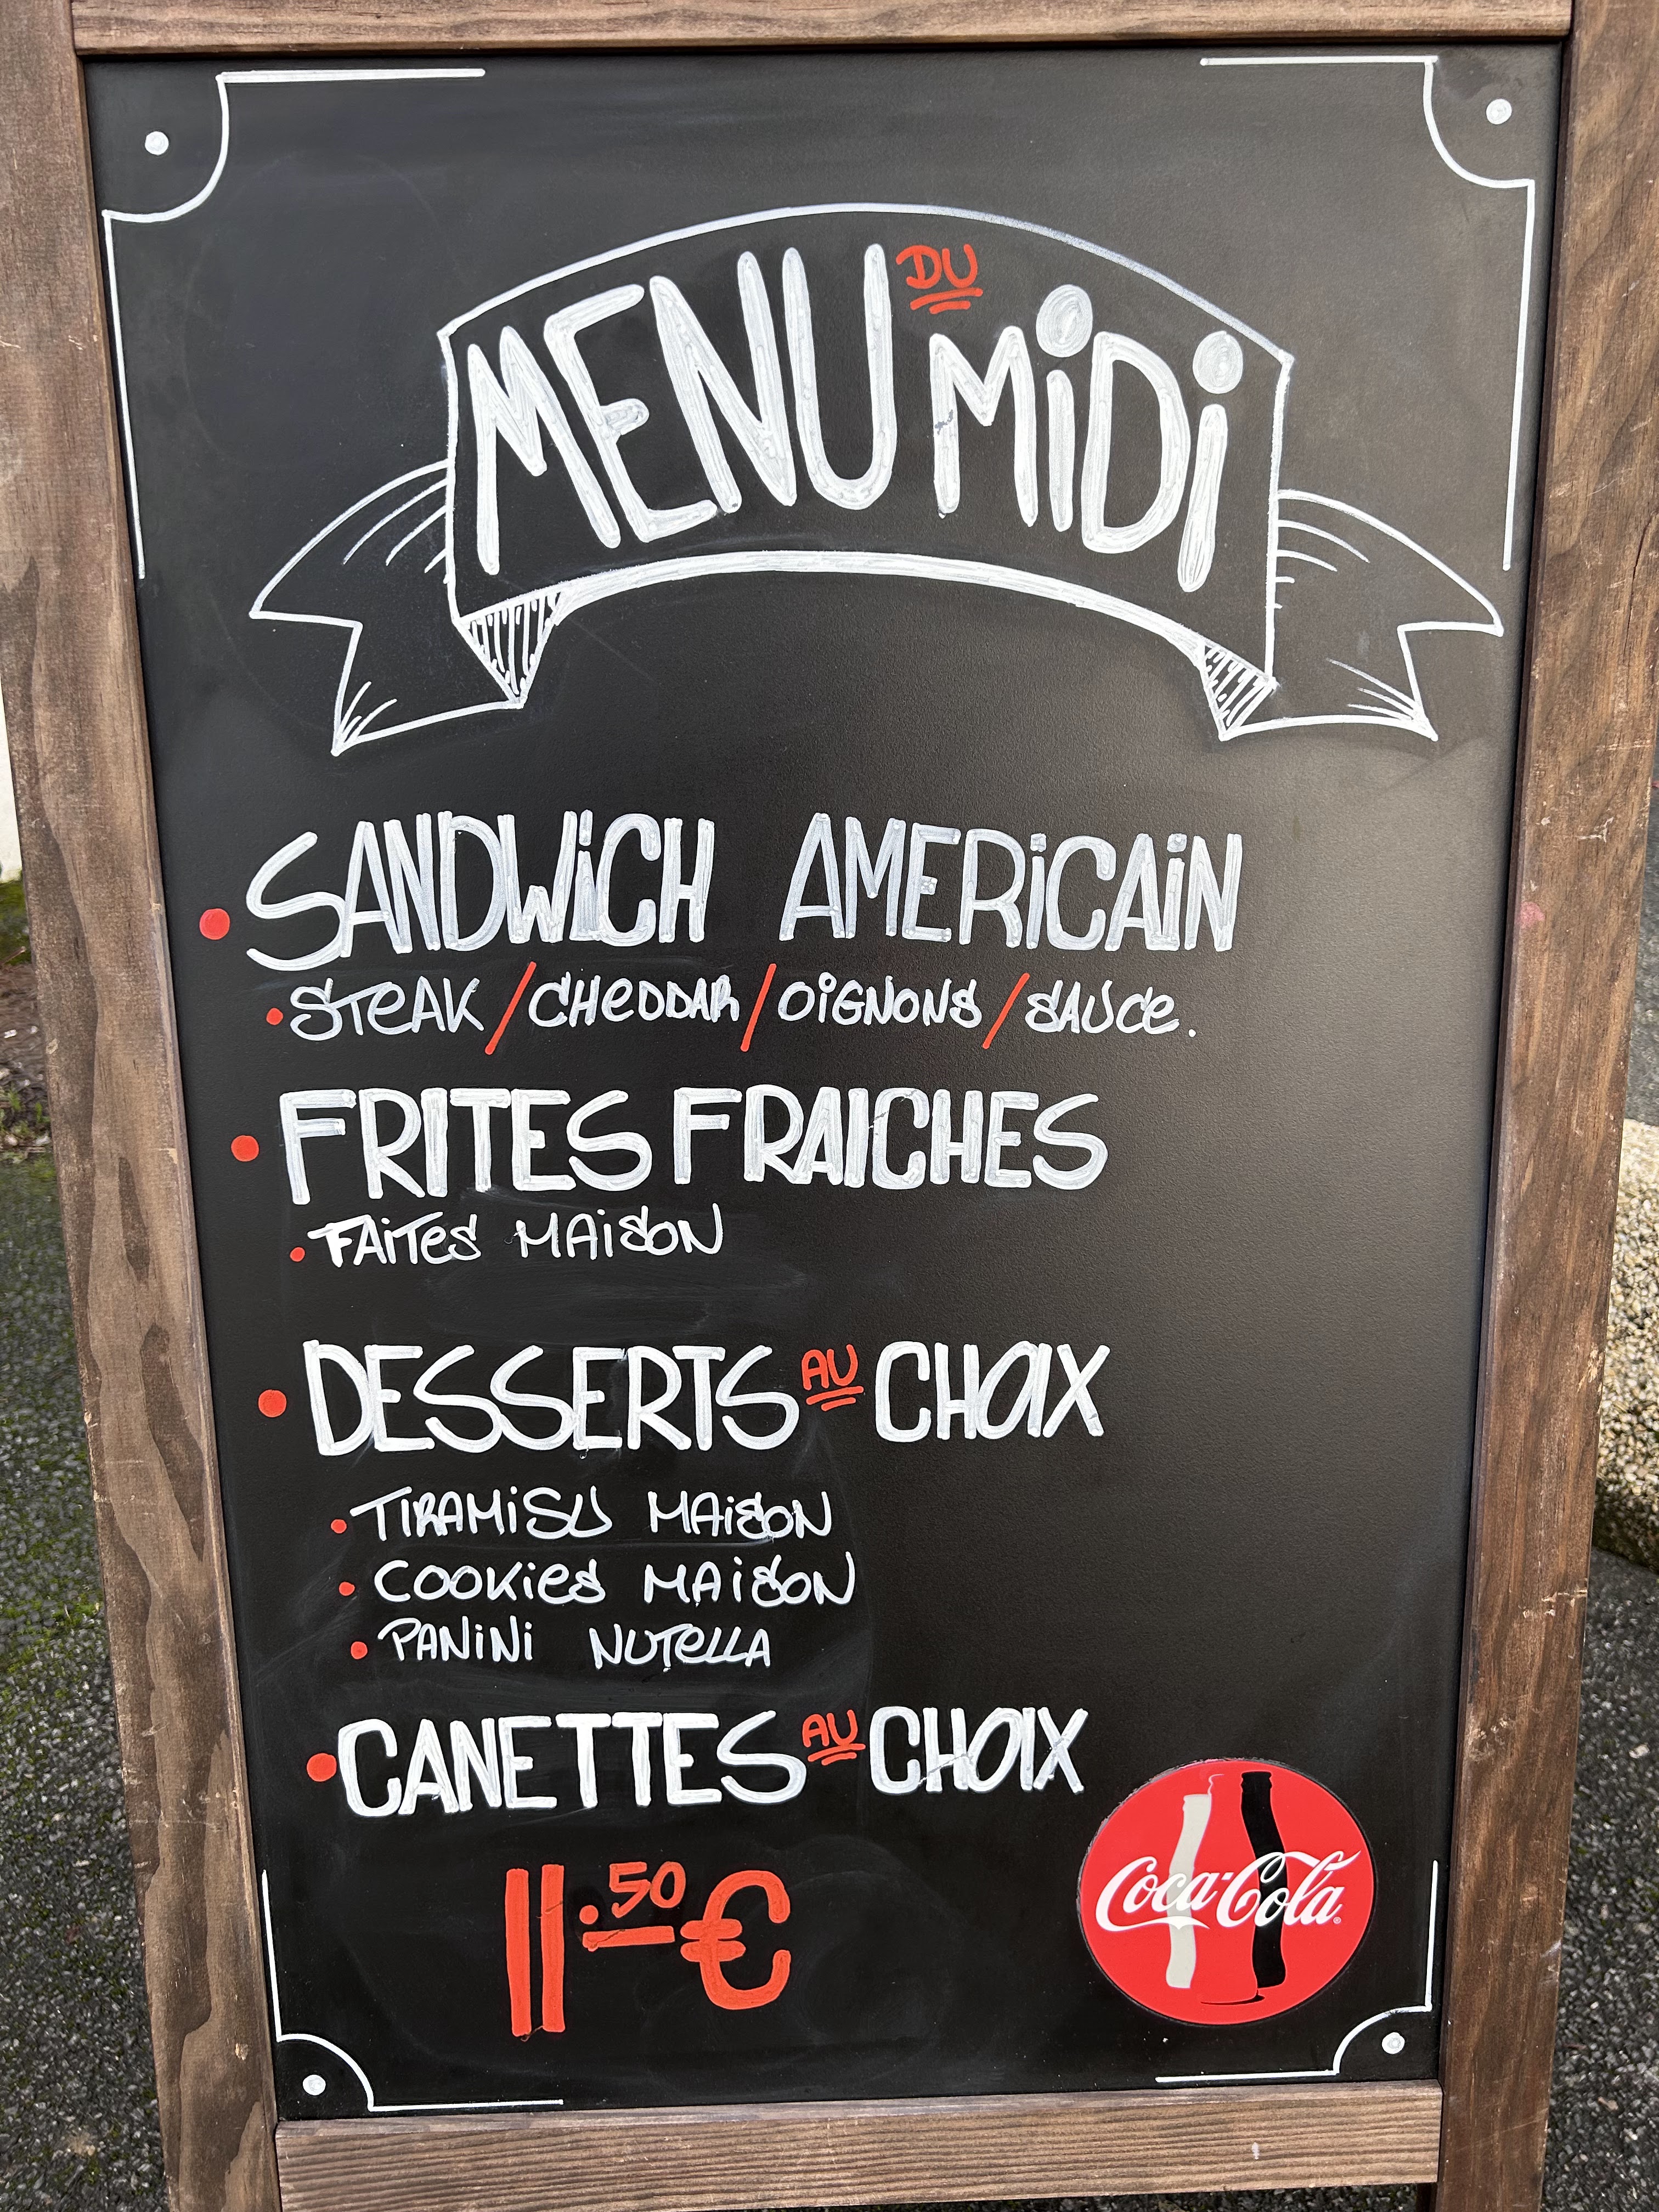 MENU DU MiDi
SANDWiCH AMERiCAiN
STEAK / CHEDDAR / OiGNONS / SAUCE.
FRITES FRAICHES
FAiTES MAiSON
DESSERTS AU CHOIX
TIRAMiSU MAiSON
COOKiES MAiSON
PANiNi NUTELLA
CANETTES AU CHOIX
11.50 €
Coca-Cola